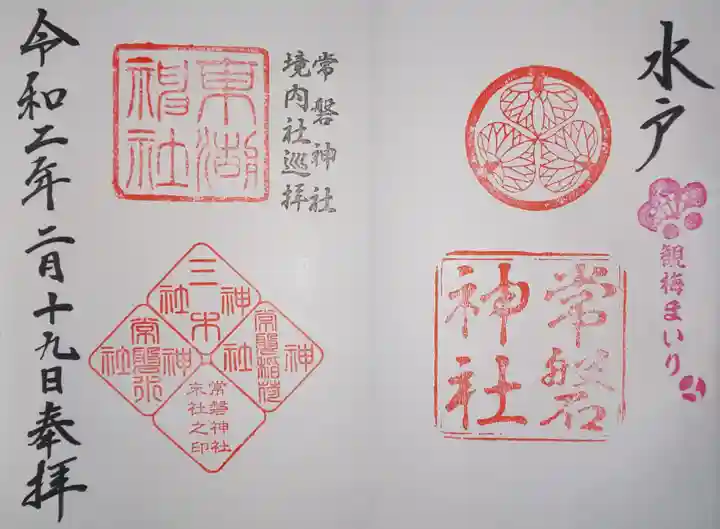 水戸
観梅まいり
常磐
神社
常磐神社
境内社巡拝
東湖
神社
三木
神社
常磐稲荷
神社
常磐
神社
常磐神社
末社之印
令和二年二月十九日奉拝